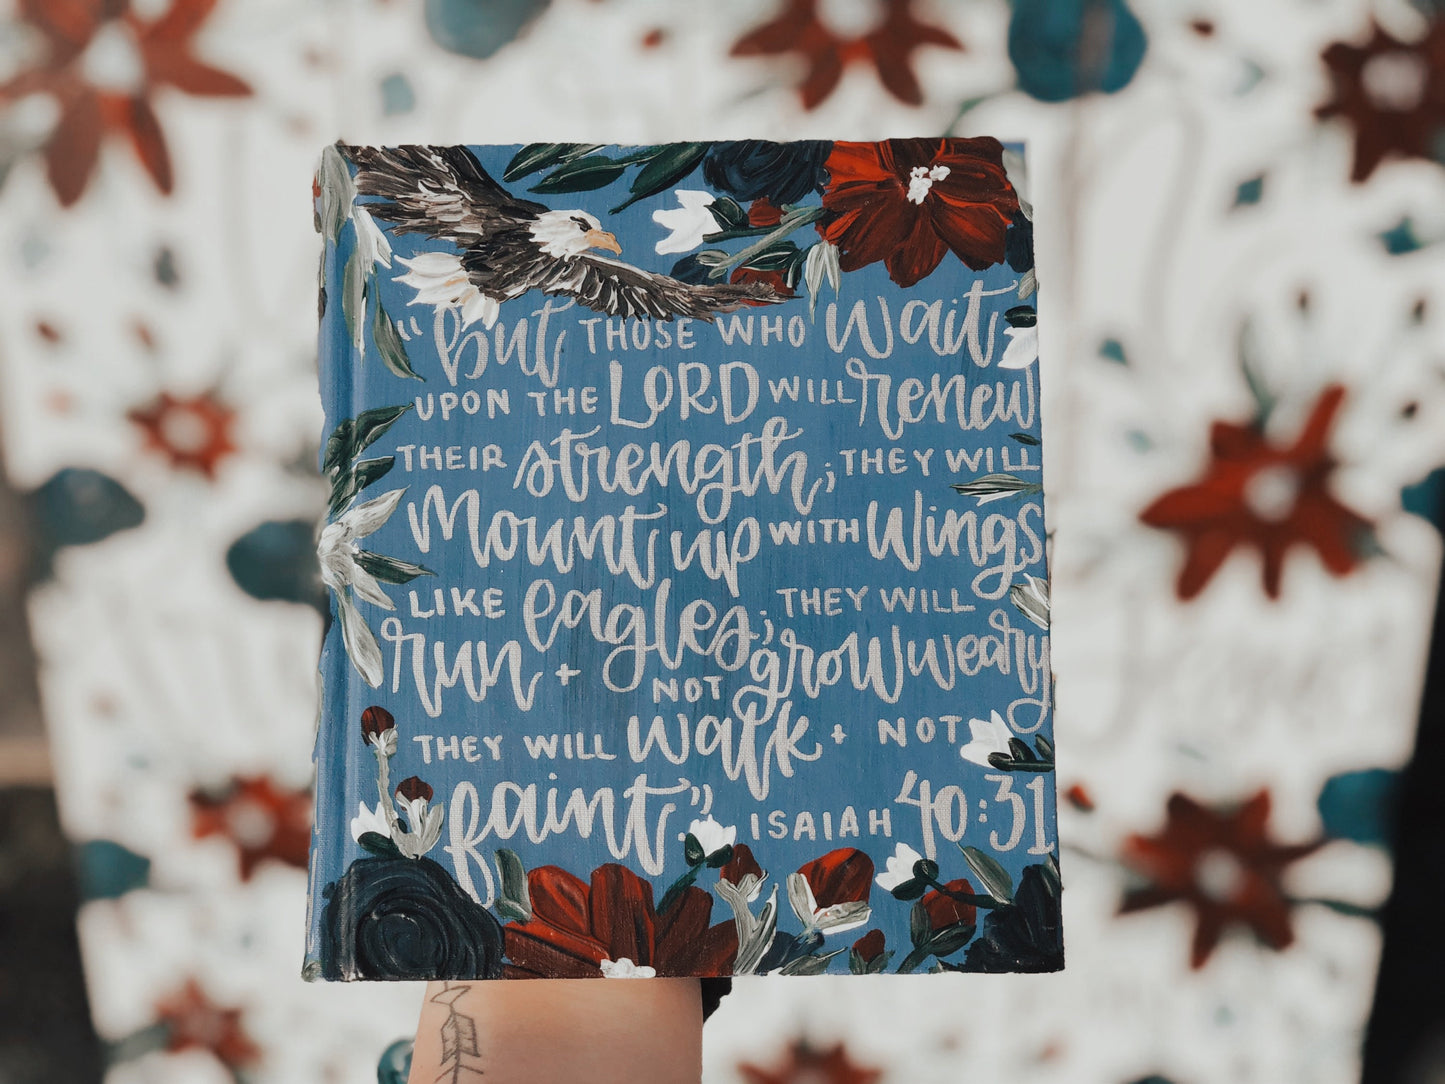 "But THOSE WHO wait
UPON THE LORD WILL renew
THEIR strength; THEY WILL
Mount up WITH Wings
LIKE eagles; THEY WILL
run + NOT grow weary
THEY WILL walk + NOT
faint." ISAIAH 40:31